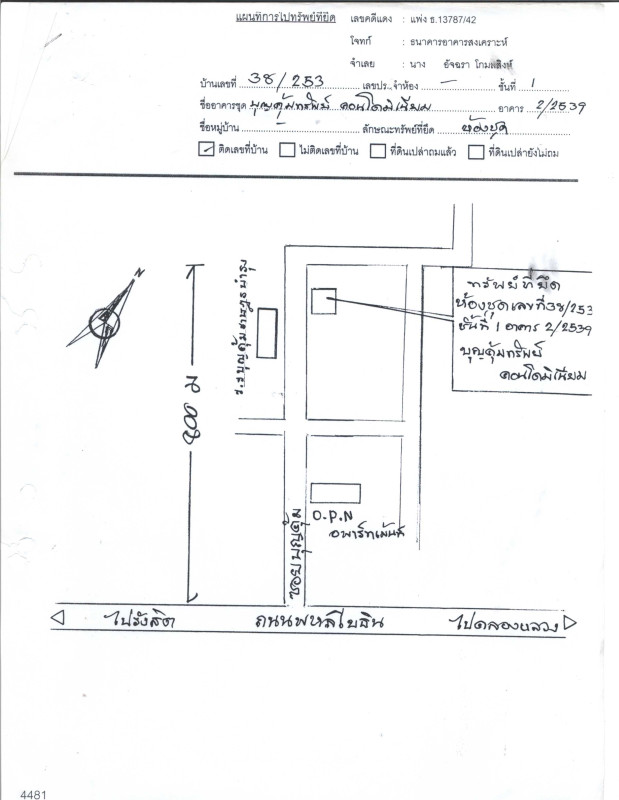 แผนที่การไปทรัพย์ที่ยึด เลขคดีแดง : แพ่ง ธ.13787/42
โจทก์ : ธนาคารอาคารสงเคราะห์
จำเลย : นาง อัจฉรา โกมลสิงห์
บ้านเลขที่ 38/253 เลขประจำห้อง - ชั้นที่ 1
ชื่ออาคารชุด บุญคุ้มทรัพย์ คอนโดมิเนียม อาคาร 2/2539
ชื่อหมู่บ้าน - ลักษณะทรัพย์ที่ยึด ห้องชุด
ติดเลขที่บ้าน ไม่ติดเลขที่บ้าน ที่ดินเปล่าถมแล้ว ที่ดินเปล่ายังไม่ถม
N
800 ม
ร.ร บุญคุ้มราษฎร์บำรุง
ทรัพย์ที่ยึด
ห้องชุดเลขที่ 38/253
ชั้นที่ 1 อาคาร 2/2539
บุญคุ้มทรัพย์
คอนโดมิเนียม
O.P.N
อพาร์ทเม้นท์
ซอยบุญคุ้ม
ไปรังสิต ถนนพหลโยธิน ไปคลองหลวง
4481